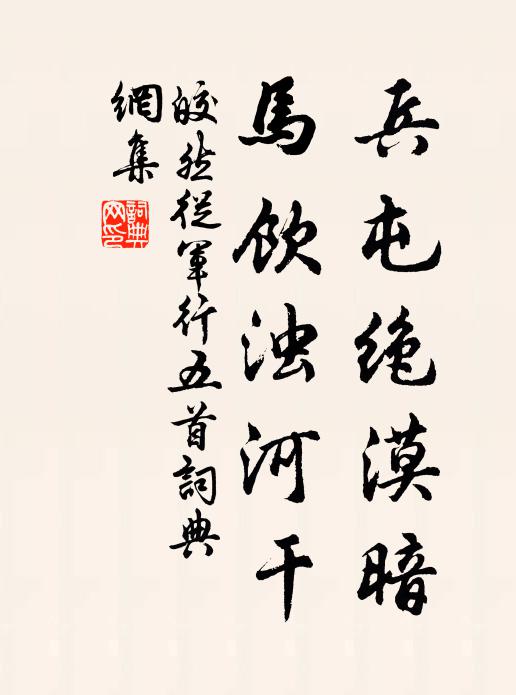 兵屯绝漠暗
馬飲浊河干
皎然從軍行五首詞典
網集
詞典网印